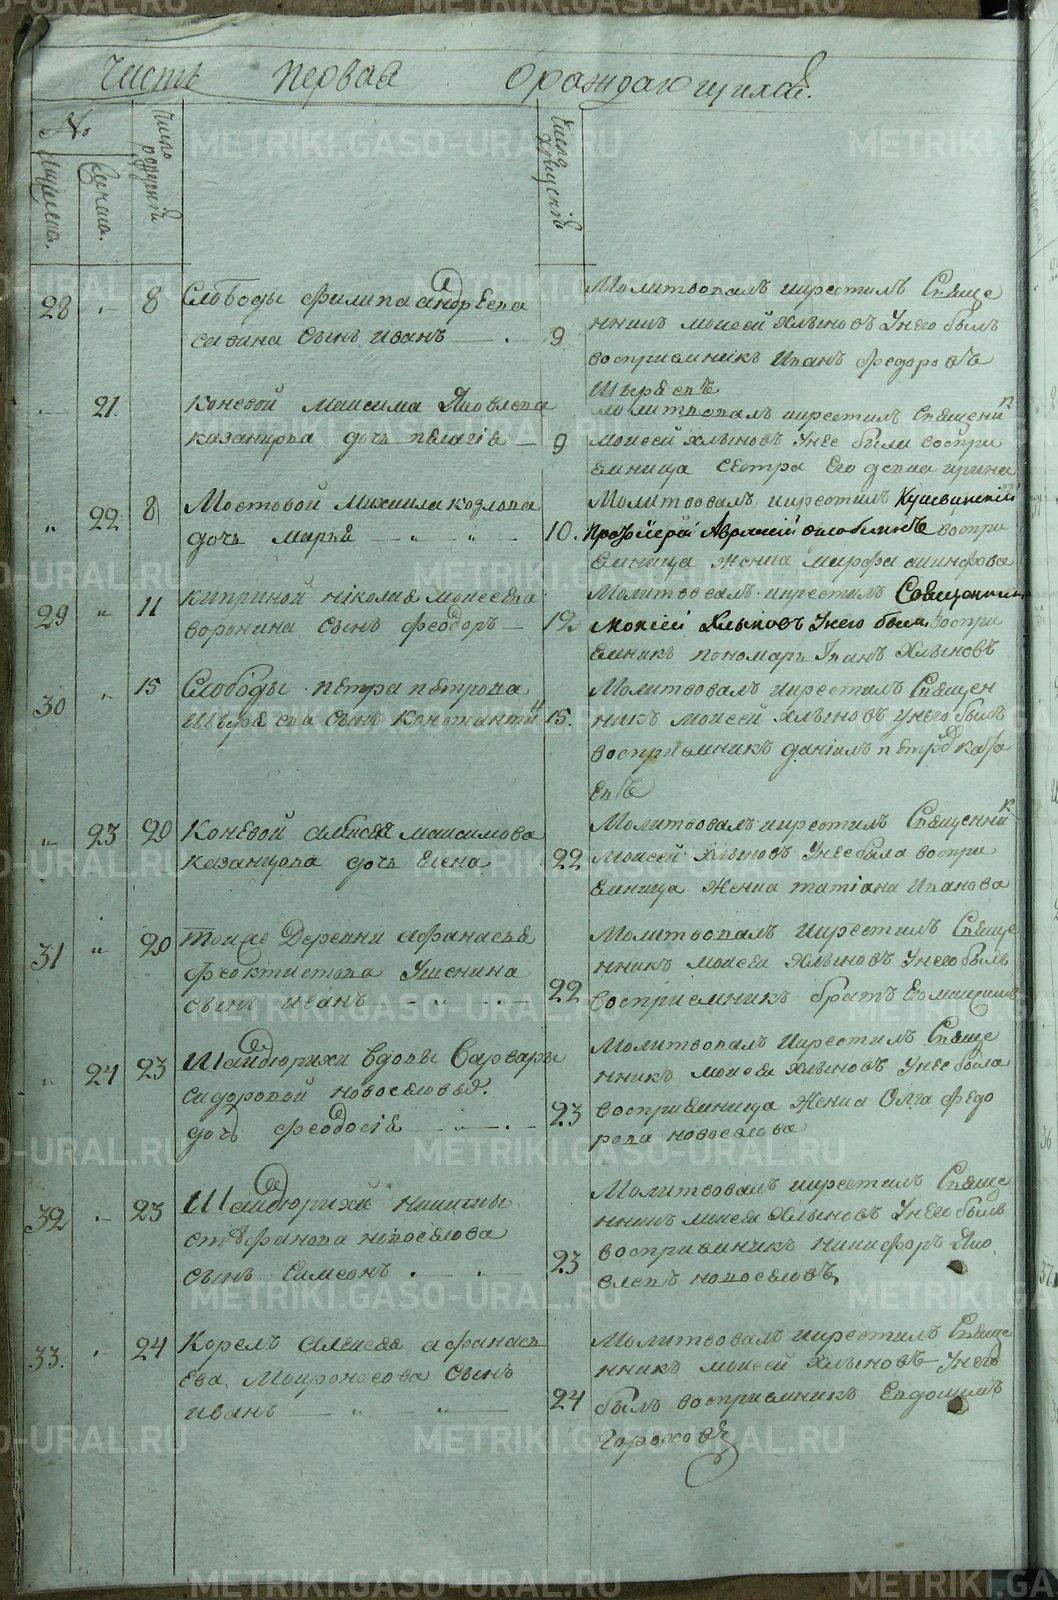 Часть первая о раждающихся.
№
Мужеска.
Женска.
Число рождениѣ
Число крещениѣ
28 8 Слободы Филипа Андреева
савина сынъ иванъ 9
Молитвовалъ икрестилъ Свяще
нникъ моисей Хлыновъ Унего былъ
восприемникъ Иванъ Федоровъ
21 Коневой Максима Яковлева
казанцова дочь пелагіѣ 9
молитвовалъ икрестилъ Священникъ
моисей хлыновъ Унее были воспри
емница сестра его
22 8 Мостовой Михаила козлова
дочь марья 10.
Молитвовалъ икрестилъ Кушвинскій
воспри
емница жена марфа
29 11 киприной николаѣ моисеева
воронина сынъ феодоръ 12
Молитвовалъ икрестилъ Священникъ
Моисей Хлыновъ Унего былъ воспри
емникъ пономарь Иванъ Хлыновъ
30 15 Слободы петра петрова
сынъ константинъ 15.
Молитвовалъ икрестилъ Священ
никъ моисей Хлыновъ унего былъ
восприемникъ даніилъ петровъ
23 20 Коневой алексеѣ максимова
казанцова дочь елена 22
Молитвовалъ икрестилъ Священникъ
Моисей Хлыновъ Унее была воспри
емница жена татіана Иванова
31 20 Деревни афанасья
феоктистова Ушенина
сынъ иванъ 22
Молитвовалъ икрестилъ Свяще
нникъ моисеи Хлыновъ Унего былъ
восприемникъ братъ его максимъ
24 23 Шайдюрихи вдовы варвары
сидоровой новоселовы.
дочь феодосіѣ 23
Молитвовалъ икрестилъ Свяще
нникъ моисеи Хлыновъ Унее была
восприемница жена Олга федо
рова новоселова
32 23 Шайдюрихи никиты
стефанова новоселова
сынъ Симеонъ 23
Молитвовалъ икрестилъ Свяще
нникъ моисеи Хлыновъ Унего былъ
восприемникъ никифоръ Яко
влевъ новоселовъ
33. 24 Корелъ алексеѣ афанась
ева Мокроносова сынъ
иванъ 24
Молитвовалъ икрестилъ Свяще
нникъ моисей Хлыновъ Унего
былъ восприемникъ Евдокимъ
Гороховъ
METRIKI.GASO-URAL.RU